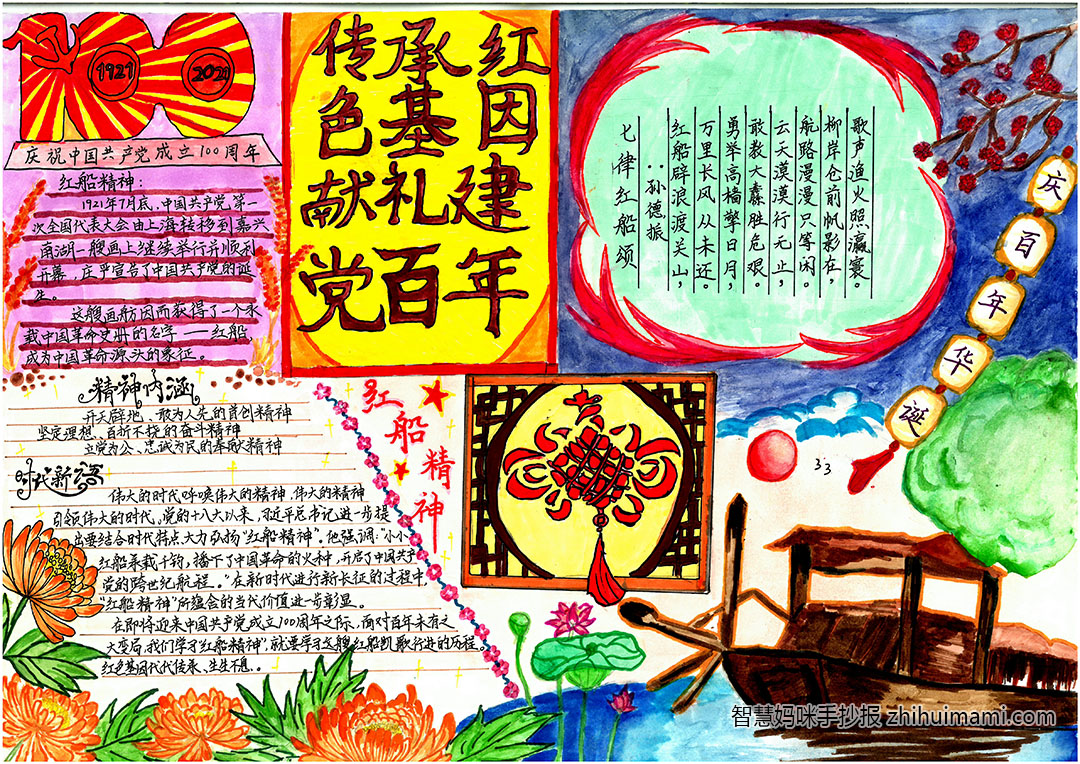 1921
2021
庆祝中国共产党成立100周年
红船精神：
1921年7月底，中国共产党第一
次全国代表大会由上海转移到嘉兴
南湖一艘画上继续举行并顺利
开幕，庆严宣告了中国共产党的诞
生。
这艘画舫因而获得了一个永
载中国革命史册的名字——红船，
成为中国革命源头的象征。
红因建年
承基礼百
传色献党
歌声渔火照瀛寰。
柳岸仓前帆影在，
航路漫漫只等闲。
云天漠漠行无止，
敢教大纛胜危艰。
勇举高樯擎日月，
万里长风从未还。
红船辟浪渡关山，
：孙德振
七律红船颂
庆百年华诞
精神内涵
开天辟地、敢为人先的首创精神
坚定理想、百折不挠的奋斗精神
立党为公、忠诚为民的奉献精神
红船精神
时代新语
伟大的时代呼唤伟大的精神 伟大的精神
引领伟大的时代，党的十八大以来，习近平总书记进一步提
出要结合时代特点大力弘扬“红船精神”。他强调：“小小
红船承载千钧，播下了中国革命的火种，开启了中国共产
党的跨世纪航程。”在新时代进行新长征的过程中，
“红船精神”所蕴含的当代价值进一步彰显。
在即将迎来中国共产党成立100周年之际，面对百年未有之
大变局，我们学习“红船精神”就要学习这艘红船凯歌行进的历程。
红色基因代代传承、生生不息。
智慧妈咪手抄报 zhihuimami.com